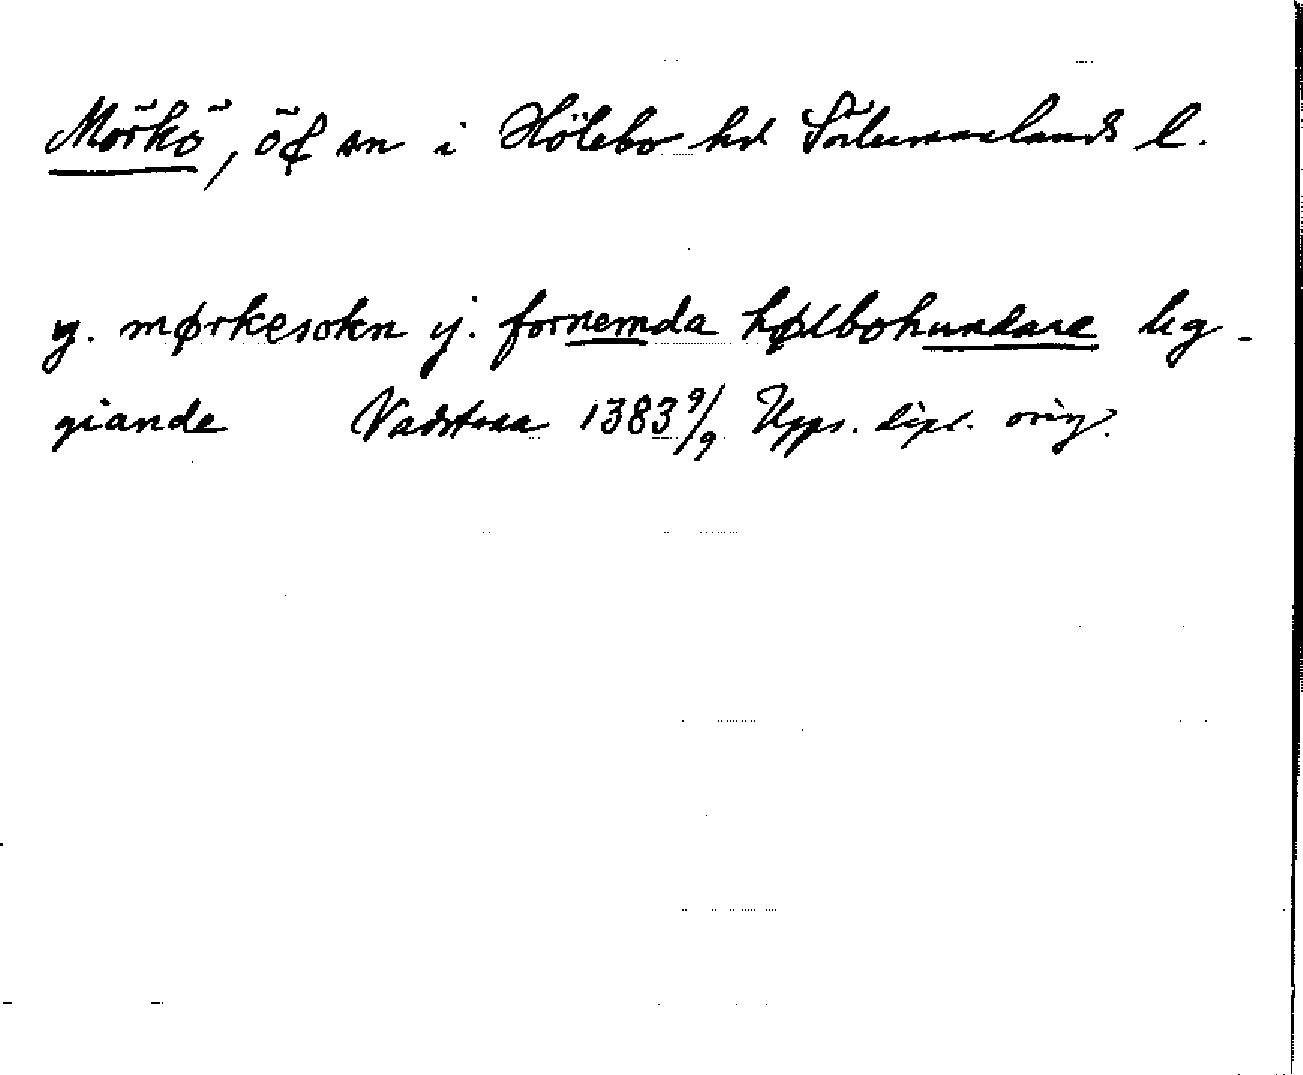 Mörkö, ö o sn i Hölebo hd Södermanlands l.
y. mørkesokn y. fornemda hølbohundare lig-
giande Vadstena 1383 9/9 Upps. dipl. orig.